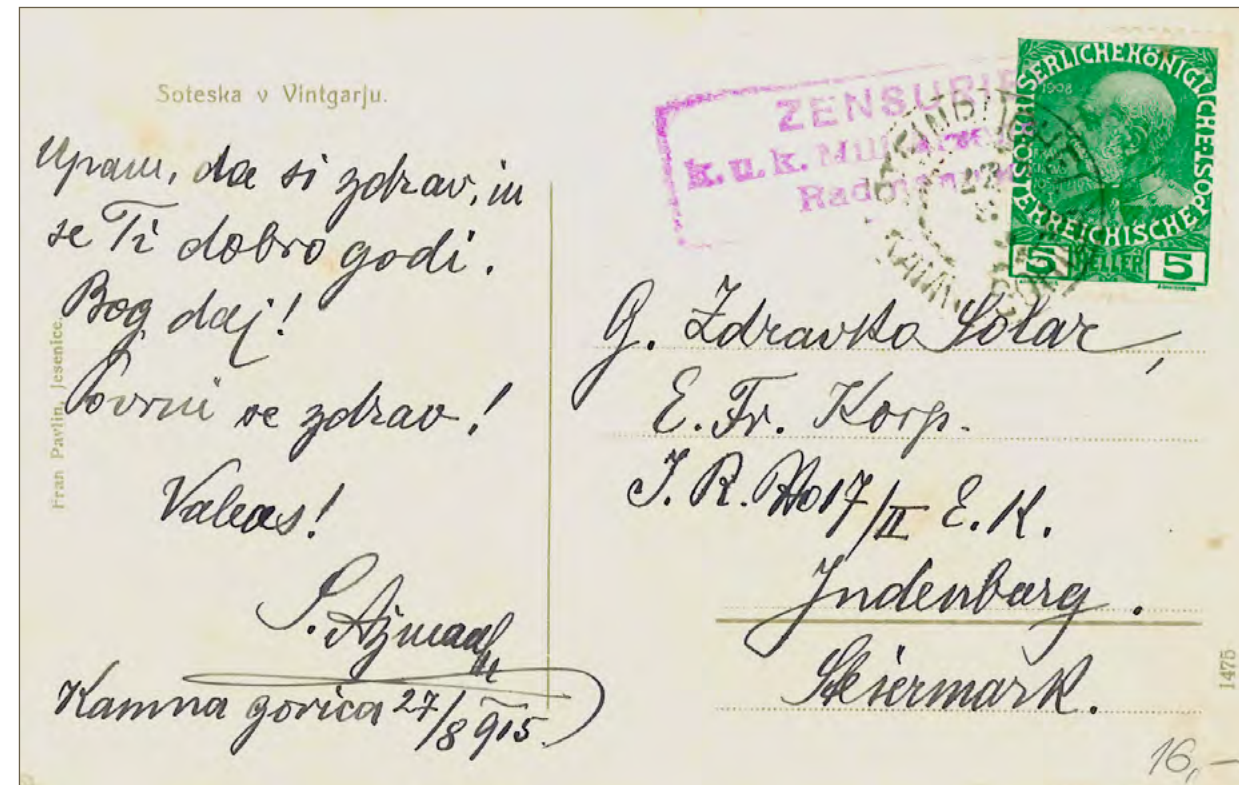 Soteska v Vintgarju.
Upam, da si zdrav, in
se Ti dobro godi.
Bog daj!
Povrni se zdrav!
Valeas!
S. Ažman
Kamna gorica 27/8 915.
Fran Pavlin, Jesenice.
ZENSURI
k. u. k. Mili
Radman
KAISERLICHE KÖNIGLICHE ÖSTERREICHISCHE POST
1908
5 HELLER 5
G. Zdravko Šolar,
E. Fr. Korp.
J. R. No 17/II E. K.
Judenburg.
Steiermark.
1475
16,-